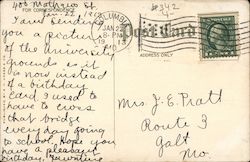 400 Mathews St.
FOR CORRESPONDENCE
Jan. 22 1913
I am sending
you a picture
of the university
grounds as it
is now instead
of a birthday
card. I used to
have to cross
that bridge
every day going
to school. Hope you
have a pleasant
birthday.
COLUMBIA
JAN 22
8 - PM
1913
Post Card
ADDRESS ONLY
Mrs J. E. Pratt
Route 3
Galt
Mo.